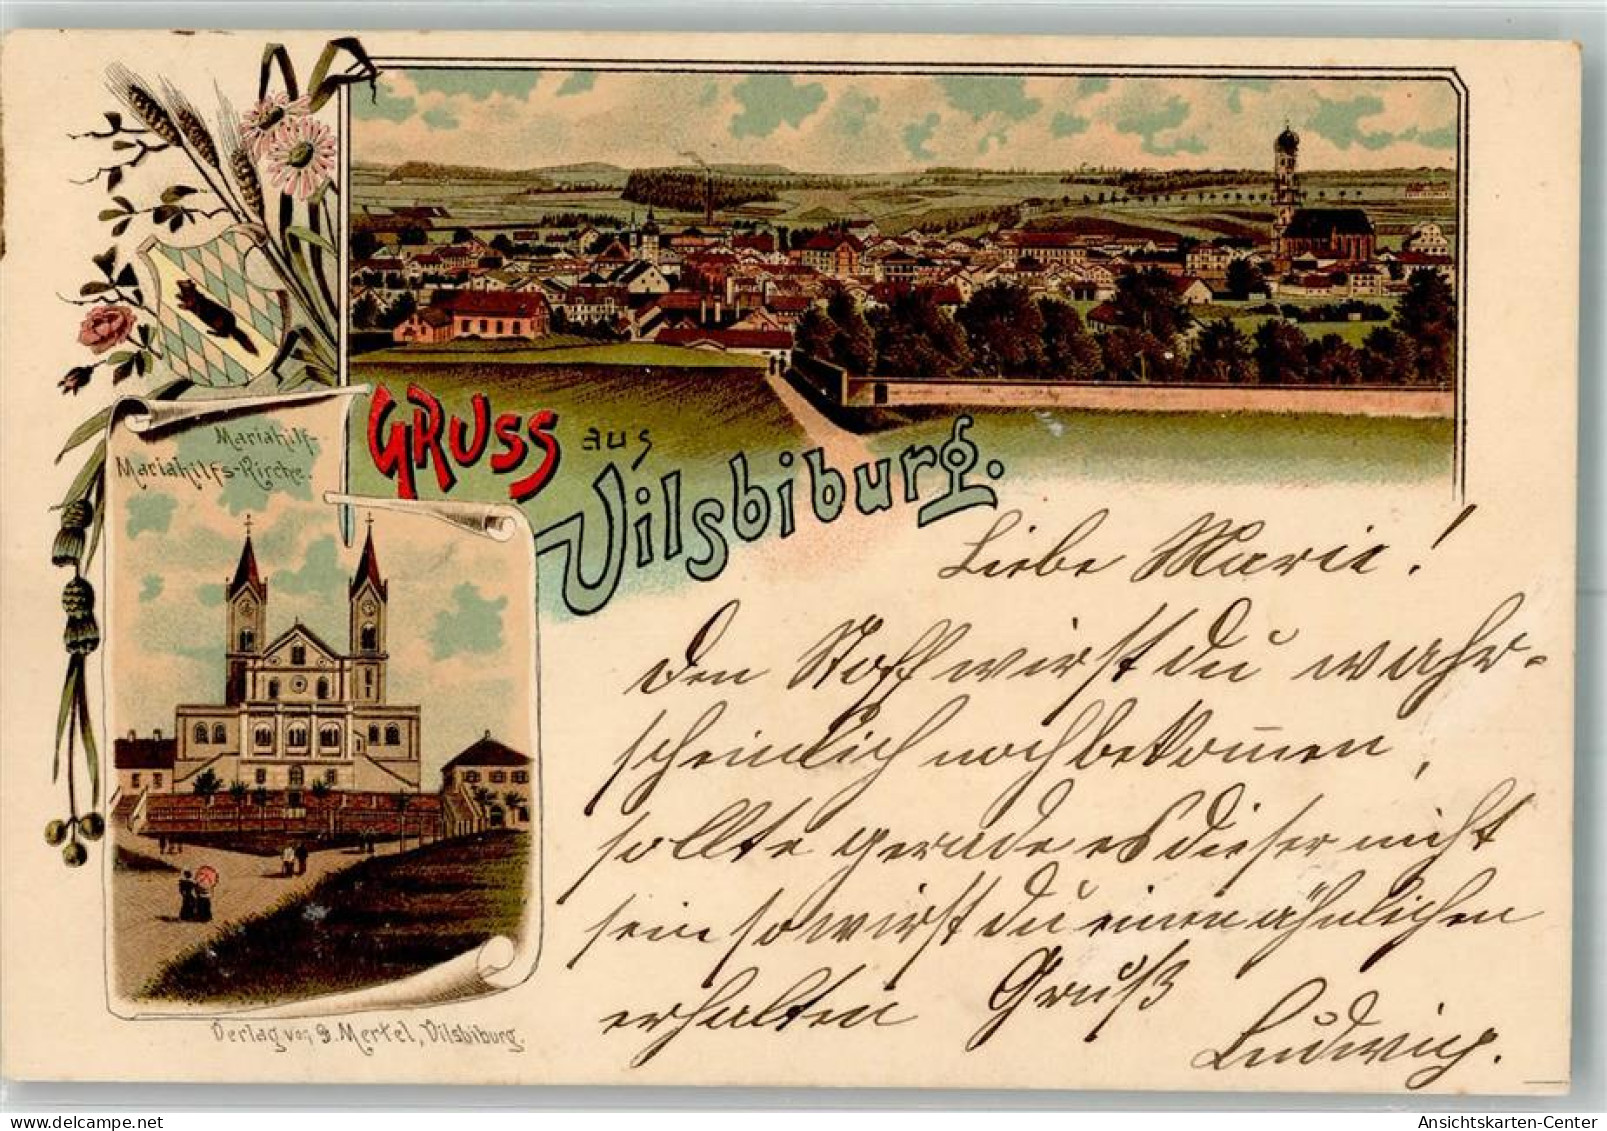 Mariahilf-
Mariahilfs-Kirche.
GRUSS aus
Vilsbiburg.
Liebe Marie!
Den Stoff wirst du wahr-
scheinlich noch bekom̄en,
sollte gerade es dieser nicht
sein so wirst du einen ähnlichen
erhalten Gruß
Ludwig.
Verlag von G. Mertel, Vilsbiburg.
Ansichtskarten-Center